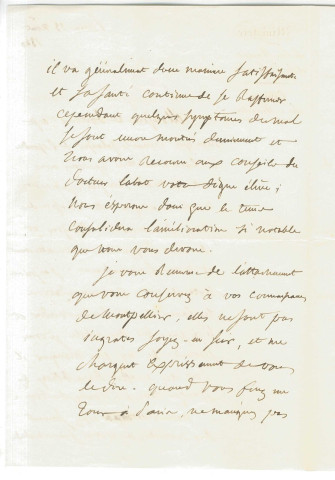 il va généralement d'une manière satisfaisante
et sa santé continue de se raffermir
cependant quelques symptomes du mal
se sont encore montrés dernièrement et
nous avons recouru aux conseils du
docteur labat votre digne élève ;
nous espérons donc que le tems
consolidera l'amélioration si notable
que nous vous devons.
je vous remercie de l'attachement
que vous conservez à vos connaissances
de montpellier, elles ne sont pas
ingrates soyez-en sur, et me
chargent expressément de vous
le dire. quand vous ferez un
tour à Paris, ne manquez pas